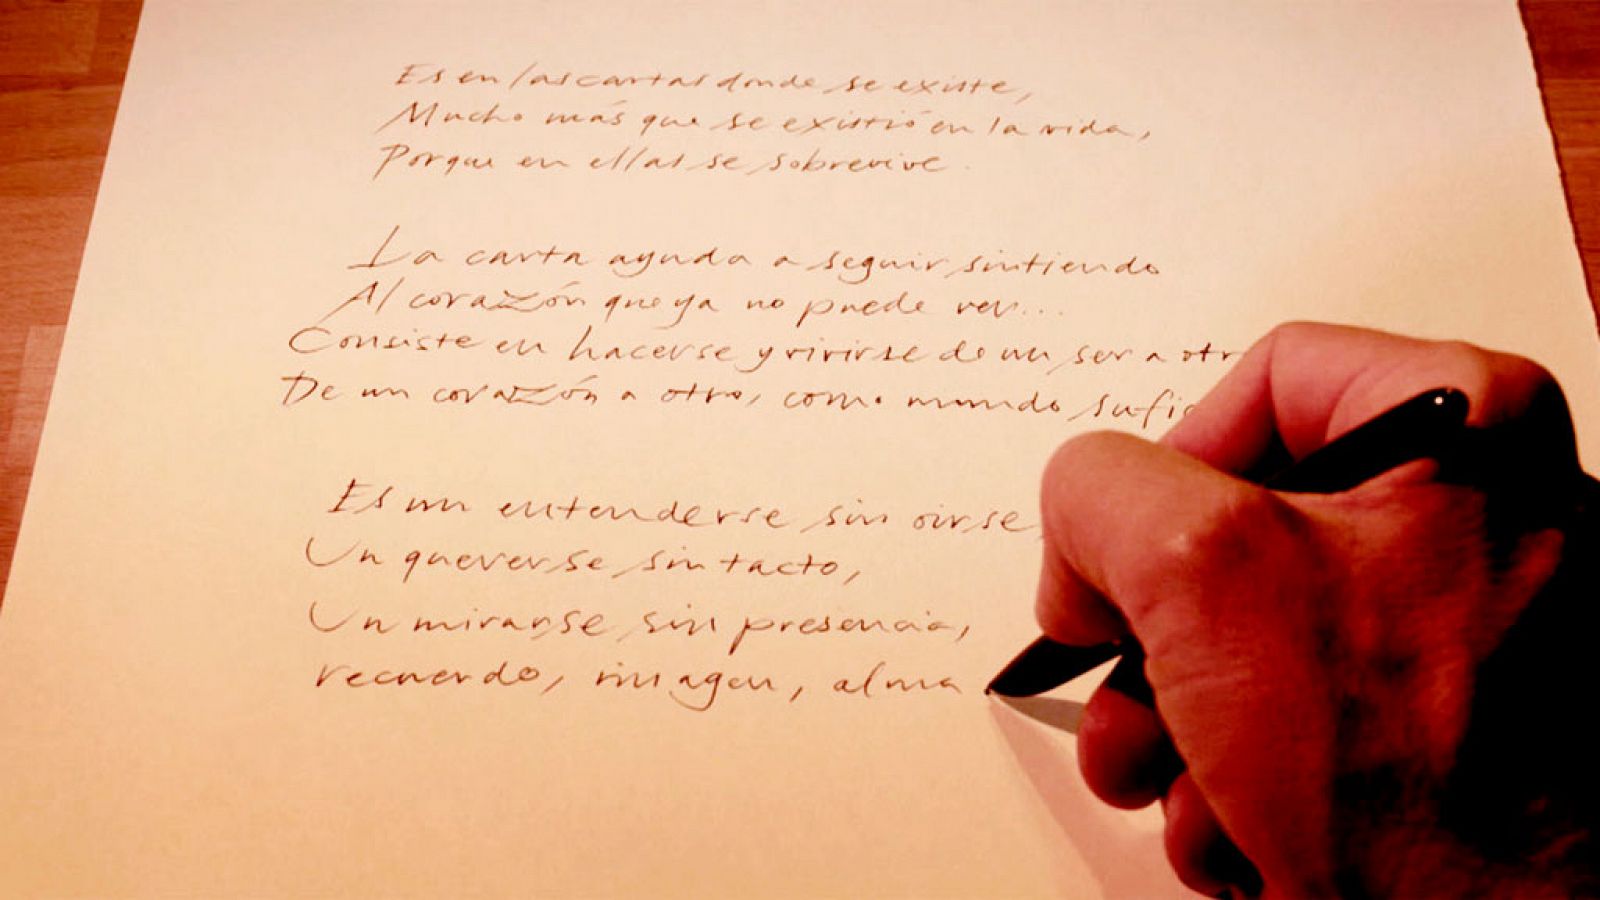 Es en las cartas donde se existe,
Mucho más que se existió en la vida,
Porque en ellas se sobrevive.
La carta ayuda a seguir sintiendo
Al corazón que ya no puede ver...
Consiste en hacerse y vivirse de un ser a otr
De un corazón a otro, como mundo sufic
Es un entenderse sin oirse
Un quererse sin tacto,
Un mirarse sin presencia,
recuerdo, imagen, alma